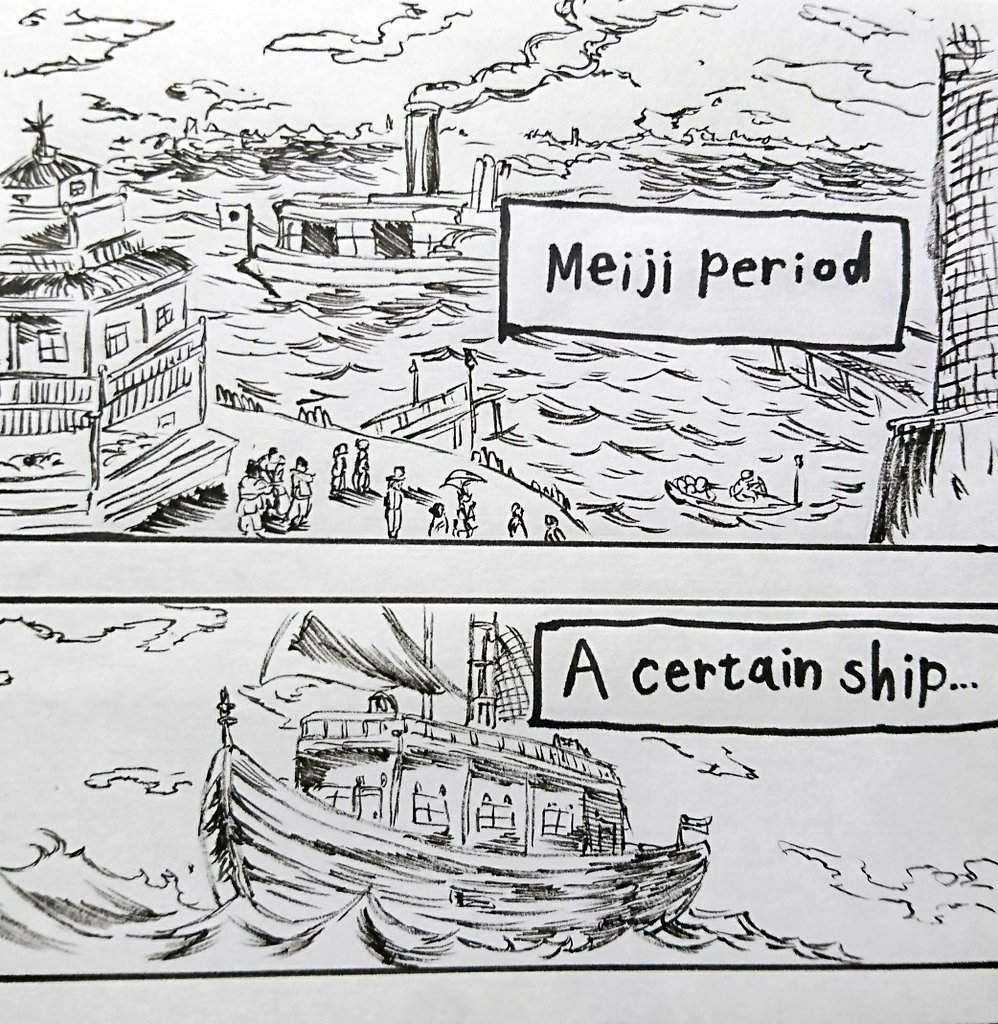 Meiji period
A certain ship...